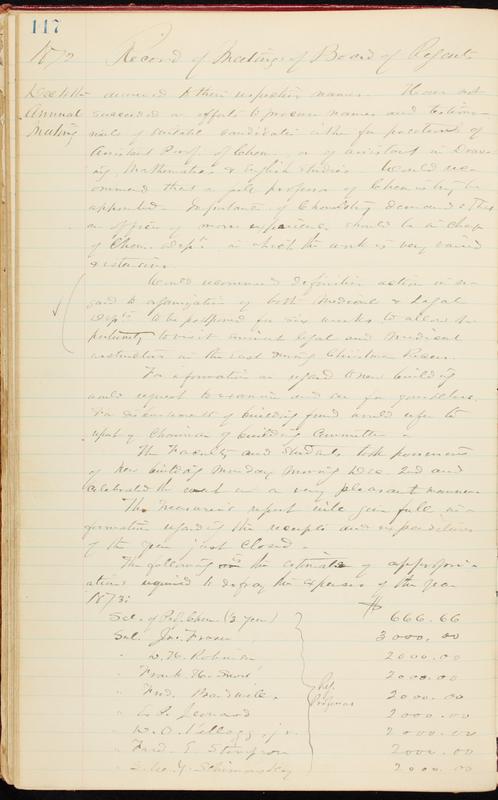 117
1872 Record of Meetings of Board of Regents
Dec 10th answered to their respective names. Have not
Annual succeeded in efforts to procure names and testimo-
Meeting nials of suitable candidates either for positions of
Assistant Prof. of Chem. or of assistant in Draw-
ing, Mathematics & English studies. Would rec-
ommend that a full professor of Chemistry be
appointed. Importance of Chemistry demands that
an officer of more experience should be in charge
of Chem. Dept. in which the work is very varied
& extensive.
Would recommend definitive action in re-
gard to organization of both Medical & Legal
Depts to be postponed for six weeks to allow op-
portunity to visit eminent legal and medical
instructors in the East during Christmas Recess.
For information in regard to new building
would request to examine and see for yourselves.
For disbursement of building fund would refer to
report of Chairman of building committee.
The Faculty and students took possession
of new building Monday morning Dec. 2nd and
celebrated the event in a very pleasant manner.
The Treasurer's report will give full in-
formation regarding the receipts and expenditures
of the year just closed.
The following are the estimates of appropri-
ations required to defray the expenses of the year
1873: $
Sal. of Prof. Chem. (⅓ year) 666.66
Sal. Jno. Fraser 3000.00
" D. H. Robinson 2000.00
" Frank H. Snow 2000.00
" Fred. Bardwell 2000.00 Reg. Professors
" 2000.00
" Kellogg jr. 2000.00
" Fred. E. Stimpson 2000.00
" 2000.00